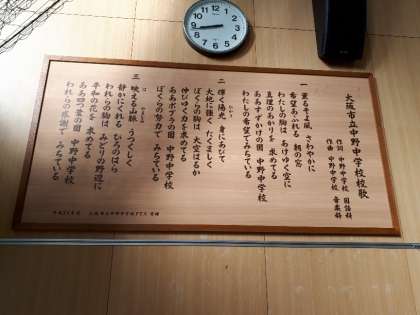 大阪市立中野中学校校歌
作詞 中野中学校 国語科
作曲 中野中学校 音楽科
一 薫るそよ風 さわやかに
希望あふれる 朝の窓
わたしの胸は あけゆく空に
真理のあかりを 求めてる
ああすずかけの園 中野中学校
わたしの希望でみちている
二 輝く陽光 身にあびて
大地に強く たくましく
ぼくらの胸は 大空はるか
伸びゆく力を求めてる
ああポプラの園 中野中学校
ぼくらの努力で みちている
三 映える山脈 うつくしく
静かにくれる ひろのはら
われらの胸は みどりの野辺に
平和の花を 求めてる
ああ四つ葉の園 中野中学校
われらの感謝で みちている